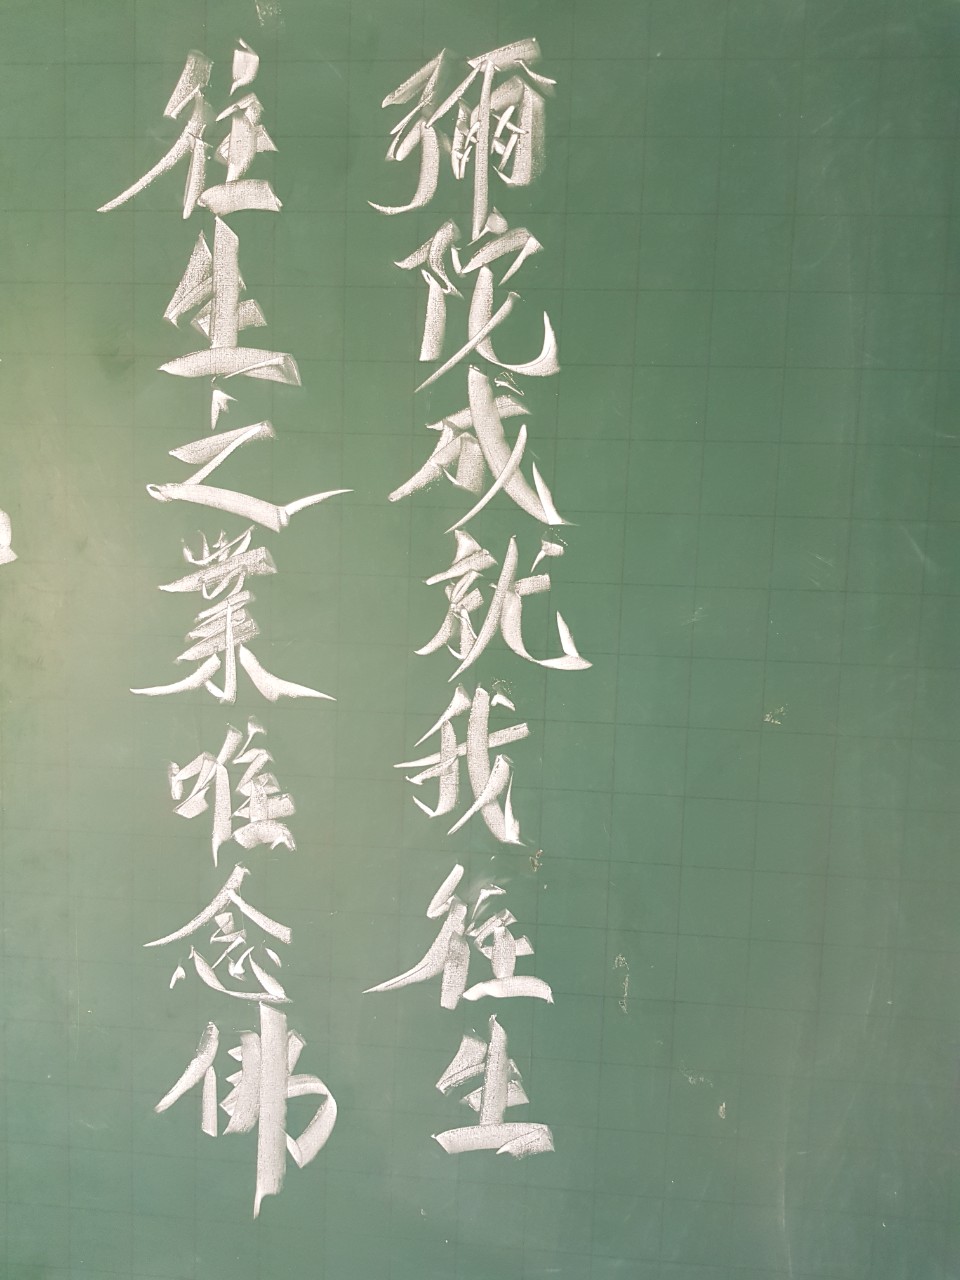 彌陀成就我往生
往生之業唯念佛